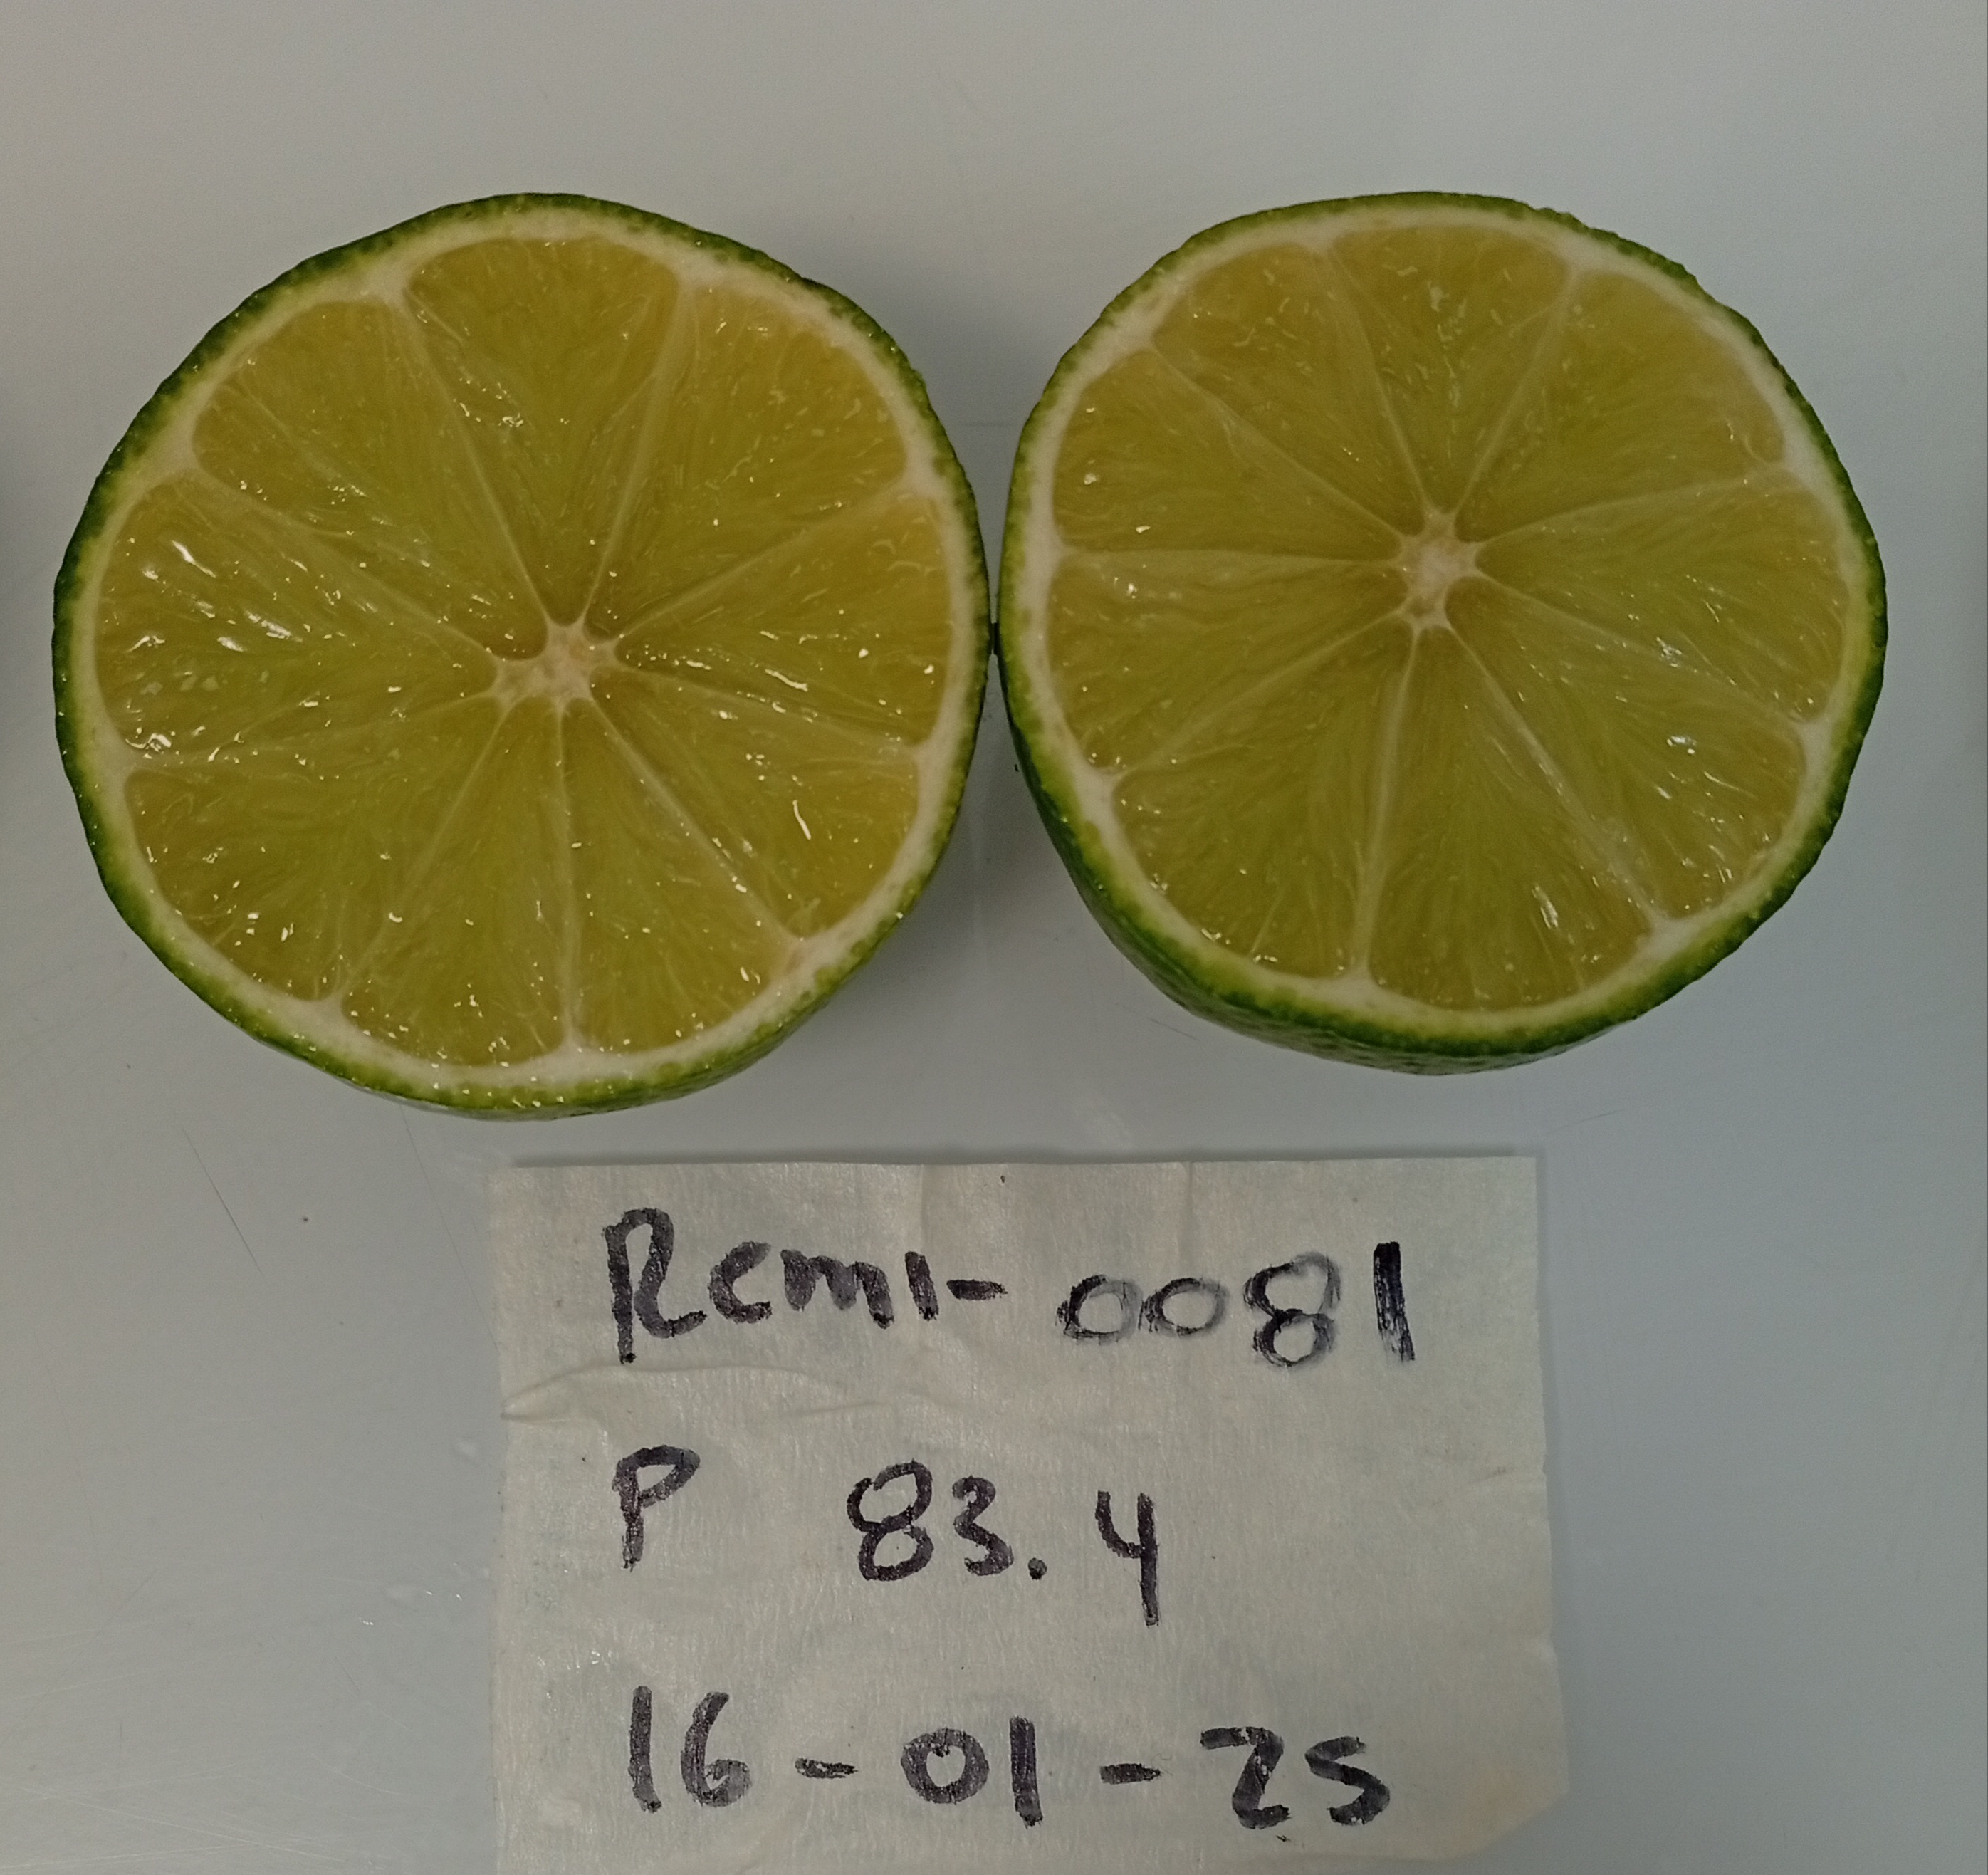 Remi-0081
P 83.4
16-01-25